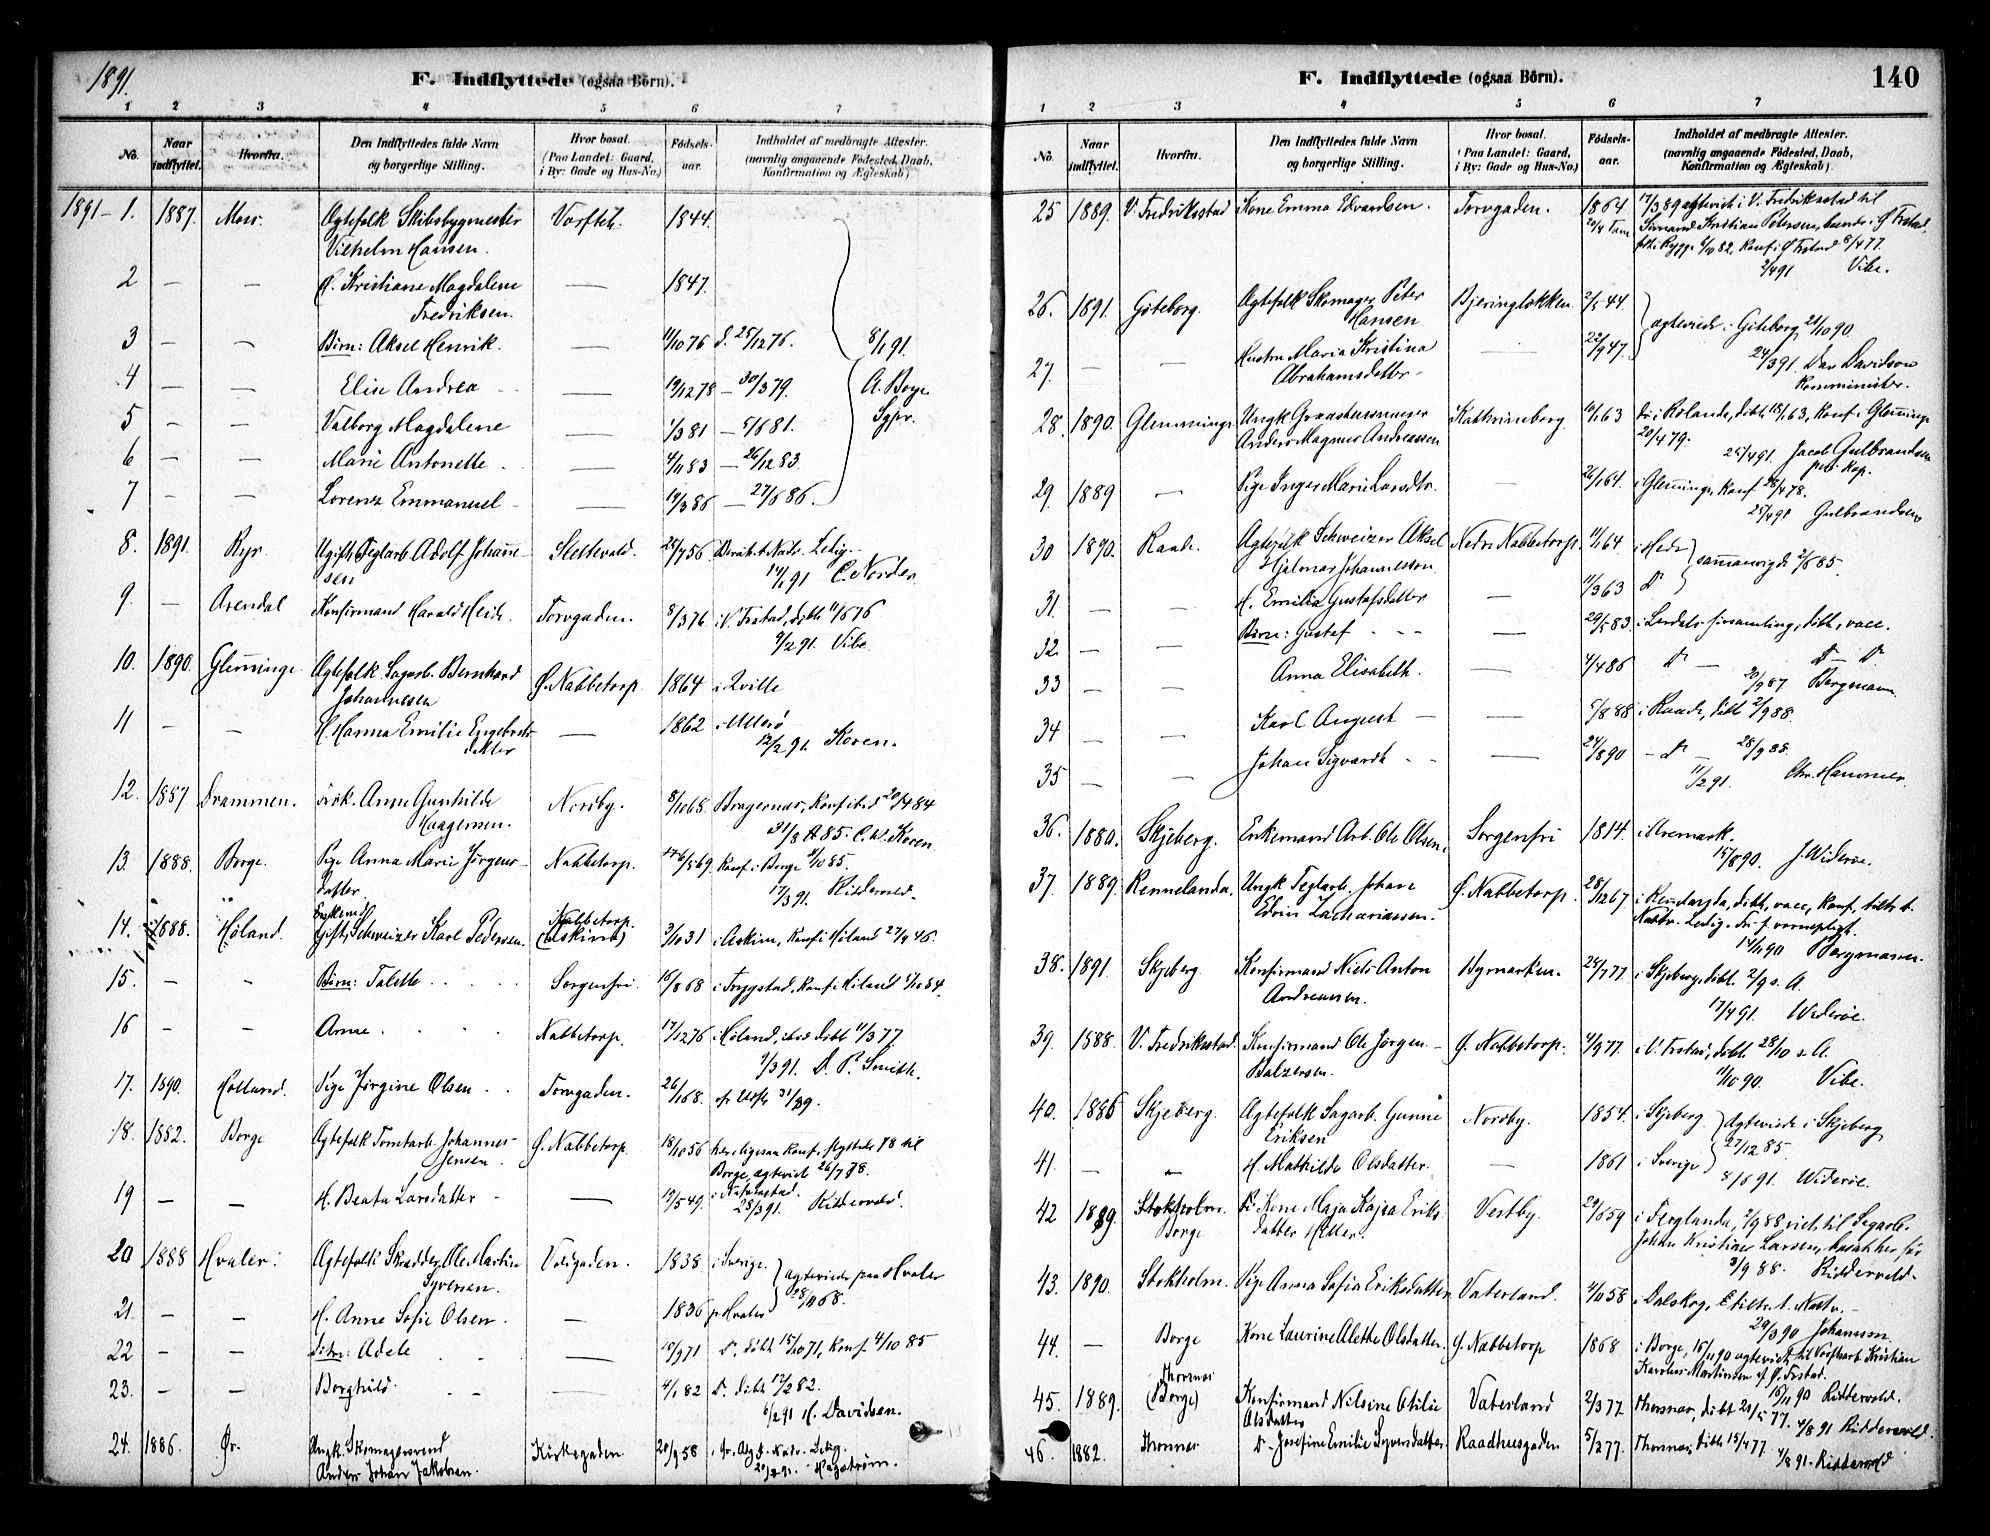 1891.
F. Indflyttede (ogsaa Børn).
1 2 3 4 5 6 7
No.
Naar indflyttet.
Hvorfra.
Den Indflyttedes fulde Navn og borgerlige Stilling.
Hvor bosat. (Paa Landet: Gaard, i By: Gade og Hus-No.)
Fødsels-aar.
Indholdet af medbragte Attester. (navnlig angaaende Fødested, Daab, Konfirmation og Ægteskab)
1891 - 1. 1887. Moss. Ægtefolk Skibsbygmester Vorfteb. 1844.
Vilhelm Hansen.
2 — — H. Kristiane Magdalene — 1847.
Fredriksen.
3 — — Børn: Aksel Henrik. — 11/10 76 d. 25/12 76. 8/1 91.
4 — — Elise Andrea — 19/12 78 — 30/3 79. A. Borge
5 — — Valborg Magdalene — 1/3 81 — 5/6 81. Sgpr.
6 — — Marie Antonette — 4/11 83 — 26/12 83.
7 — — Lorenz Emmanuel — 19/3 86 — 27/6 86.
8. 1891. Ugift Teglarb. Adolf Johanne- Slettevold. 25/7 56 Ledig.
sen 14/1 91 C. Norder
9. — Arendal Konfirmand Harald Heide. Torvgaden. 8/3 76. i V. Frstad, døbt 11/6 76
9/2 91. Vibe.
10. 1890. Glemminge Ægtefolk Sagarb. Bernhard Ø. Nabbetorp. 1864 i Qville
Johannesen
11 — — H. Hanna Emilie Engebrets- — 1862
datter 12/2 91. Koren.
12. 1887 Drammen. Anne Gunhilde Nordby. 8/10 68. Bragernæs, Konf ibid 20/4 84
Haagensen. 31/8 85. C. W. Koren.
13. 1888. Borge. Pige Anna Marie Jørgens- Nabbetorp. 69 Konf i Borge 4/10 85.
datter 17/3 91. Riddervold.
14. 1888. Høland. Enkemd Schweizer Karl Pedersen. Nabbetorp. (Askim) 3/10 31 i Askim, Konf i Høland 27/9 46.
15. — — Børn: Talette Sorgenfri. 15/8 68 i Trygstad, Konf i Høland
16 — — Anne. Nabbetorp. 17/12 76 i Høland, ibid døbt 11/3 77
1/3 91. D. P. Smith.
17. 1890. Pige Jørgine Olsen Torvgaden. 26/1 68.
18. 1882. Borge Ægtefolk Tomtarb. Johannes Ø. Nabbetorp. 18/10 56 her ligesaa Konf, flyttede 78 til
Jensen. Borge, ægteviet 26/7 78.
19 — — H. Beata Larsdatter — 19/5 49. 28/3 91. Riddervold.
20 1888 Hvaler. Ægtefolk Skrædder Ole Martin Voldgaden. 1838. i Sverige. ægteviede paa Hvaler
Syversen. 68.
21. — — H. Anne Sofie Olsen. — 1836 paa Hvaler
22 — — Børn: Adele — 10/9 71 Do. døbt 15/10 71, Konf 4/10 85
23. — — Borghild — 4/1 82 Do. døbt 12/2 82.
6/2 91 H. Davidsen.
24. 1886. Ør. Ungk. Skomagersvend Kirkegaden. 20/9 58 i Ør, Ledig.
Anders Johan Jakobsen. Hagstrøm.
F. Indflyttede (ogsaa Børn).
140
1 2 3 4 5 6 7
No.
Naar indflyttet.
Hvorfra.
Den Indflyttedes fulde Navn og borgerlige Stilling.
Hvor bosat. (Paa Landet: Gaard, i By: Gade og Hus-No.)
Fødsels-aar.
Indholdet af medbragte Attester. (navnlig angaaende Fødested, Daab, Konfirmation og Ægteskab)
25 1889. V. Fredriksstad Kone Emma Edvardsen. Torvgaden. 1864 17/3 89 ægteviet i V. Fredriksstad til
Sømand Kristian Petersen, boende i Ø. Frstad,
Konf i Ø. Frstad 8/4 77.
2/4 91 Vibe.
26. 1891. Göteborg. Ægtefolk Skomager Peter Bjeringløkken. 2/5 44. ægteviede i Göteborg 21/10 90.
Hansen
27. — — Hustru Maria Kristina — 22/9 47. 24/3 91. Dav. Davidson
Abrahamsdatter. Komminister.
28. 1890. Glemminge. Ungk Graastensminer Kathrineborg. 10/1 63 Konf i Glemminge
Anders Magnus Andreassen 20/4 79. 25/4 91. Jacob Gulbrandsen
pers. kap.
29. 1889 — Pige Inger Marie Larsdtr. 26/1 64. i Glemminge, Konf 28/4 78.
25/4 91 Gulbrandsen
30 1890. Raade. Ægtefolk Schweizer Aksel Nedre Nabbetorp. 11/1 64 i Hede sammenvigde 2/6 85.
Hjalmar Johannesson
31. — — H. Emilia Gustafsdatter — 11/3 63 Do
32 — — Børn: Gustaf — 29/5 83. i Lerdals forsamling, døbt, vacc.
33 — — Anna Elisabeth. — 4/4 86 Do — Do — Do
20/9 87 Bergmann.
34 — — Karl August — 5/8 88 i Raade, døbt 2/9 88.
35 — — Johan Sigvardt — 24/8 90 — Do — 28/9 88.
11/2 91. Chr. Hammer.
36. 1880. Skjeberg. Enkemand Arb. Ole Olsen, Sorgenfri 1814. i Aremark.
15/8 90. J. Widerøe.
37. 1889. Rennelanda. Ungk Teglarb. Johan Ø. Nabbetorp. 28/12 67 i Rennelanda, døbt, vacc, konf,
Edvin Zachariassen. Ledig.
14/11 90 Bergmann.
38. 1891. Skjeberg. Konfirmand Niels Anton Bymarken. 28/7 77 i Skjeberg, døbt 2/9 s. A.
Andreassen. 17/4 91. Widerøe.
39. 1888. V. Fredriksstad. Konfirmand Ole Jørgen Ø. Nabbetorp. 4/9 77. i V. Frstad, døbt 28/10 s. A.
Balzersen. 11/10 90. Vibe.
40. 1886 Skjeberg. Ægtefolk Sagarb. Gunne Nordby. 1854. i Skjeberg ægteviede i Skjeberg
Eriksen 27/12 85.
41. — — H. Mathilde Olsdatter. — 1861 i Sverige 8/6 91. Widerøe.
42 1889. Stokholm. Borge Kone Maja Kajsa Eriks- Vestby. 29/6 59 i Ferglanda, 2/9 88 viet til Sagarb.
datter Johan Kristian Larsen,
3/9 88. Riddervold.
43. 1890. Stokholm. Pige Anna Sofia Eriksdatter Vaterland. 4/10 58 i Dalskog,
29/3 90 Johansson.
44. — Borge Kone Laurine Alethe Olsdatter, Ø. Nabbetorp 1868 i Borge, 16/11 90 ægteviet til Vorftarb. Kristian
Karolius Martinsen af Ø. Frstad.
16/11 90 Riddervold.
45. 1889. Thorsnæs (Borge) Konfirmand Nilsine Otilie Vaterland 2/3 77. Thorsnæs, døbt 21/5 77. 4/8 91 Riddervold.
Olsdatter
46. 1882. Thorsnæs Do. Josefine Emilie Syversdatter. Raadhusgaden 5/2 77. Thorsnæs, døbt 15/4 77 4/8 91. Riddervold